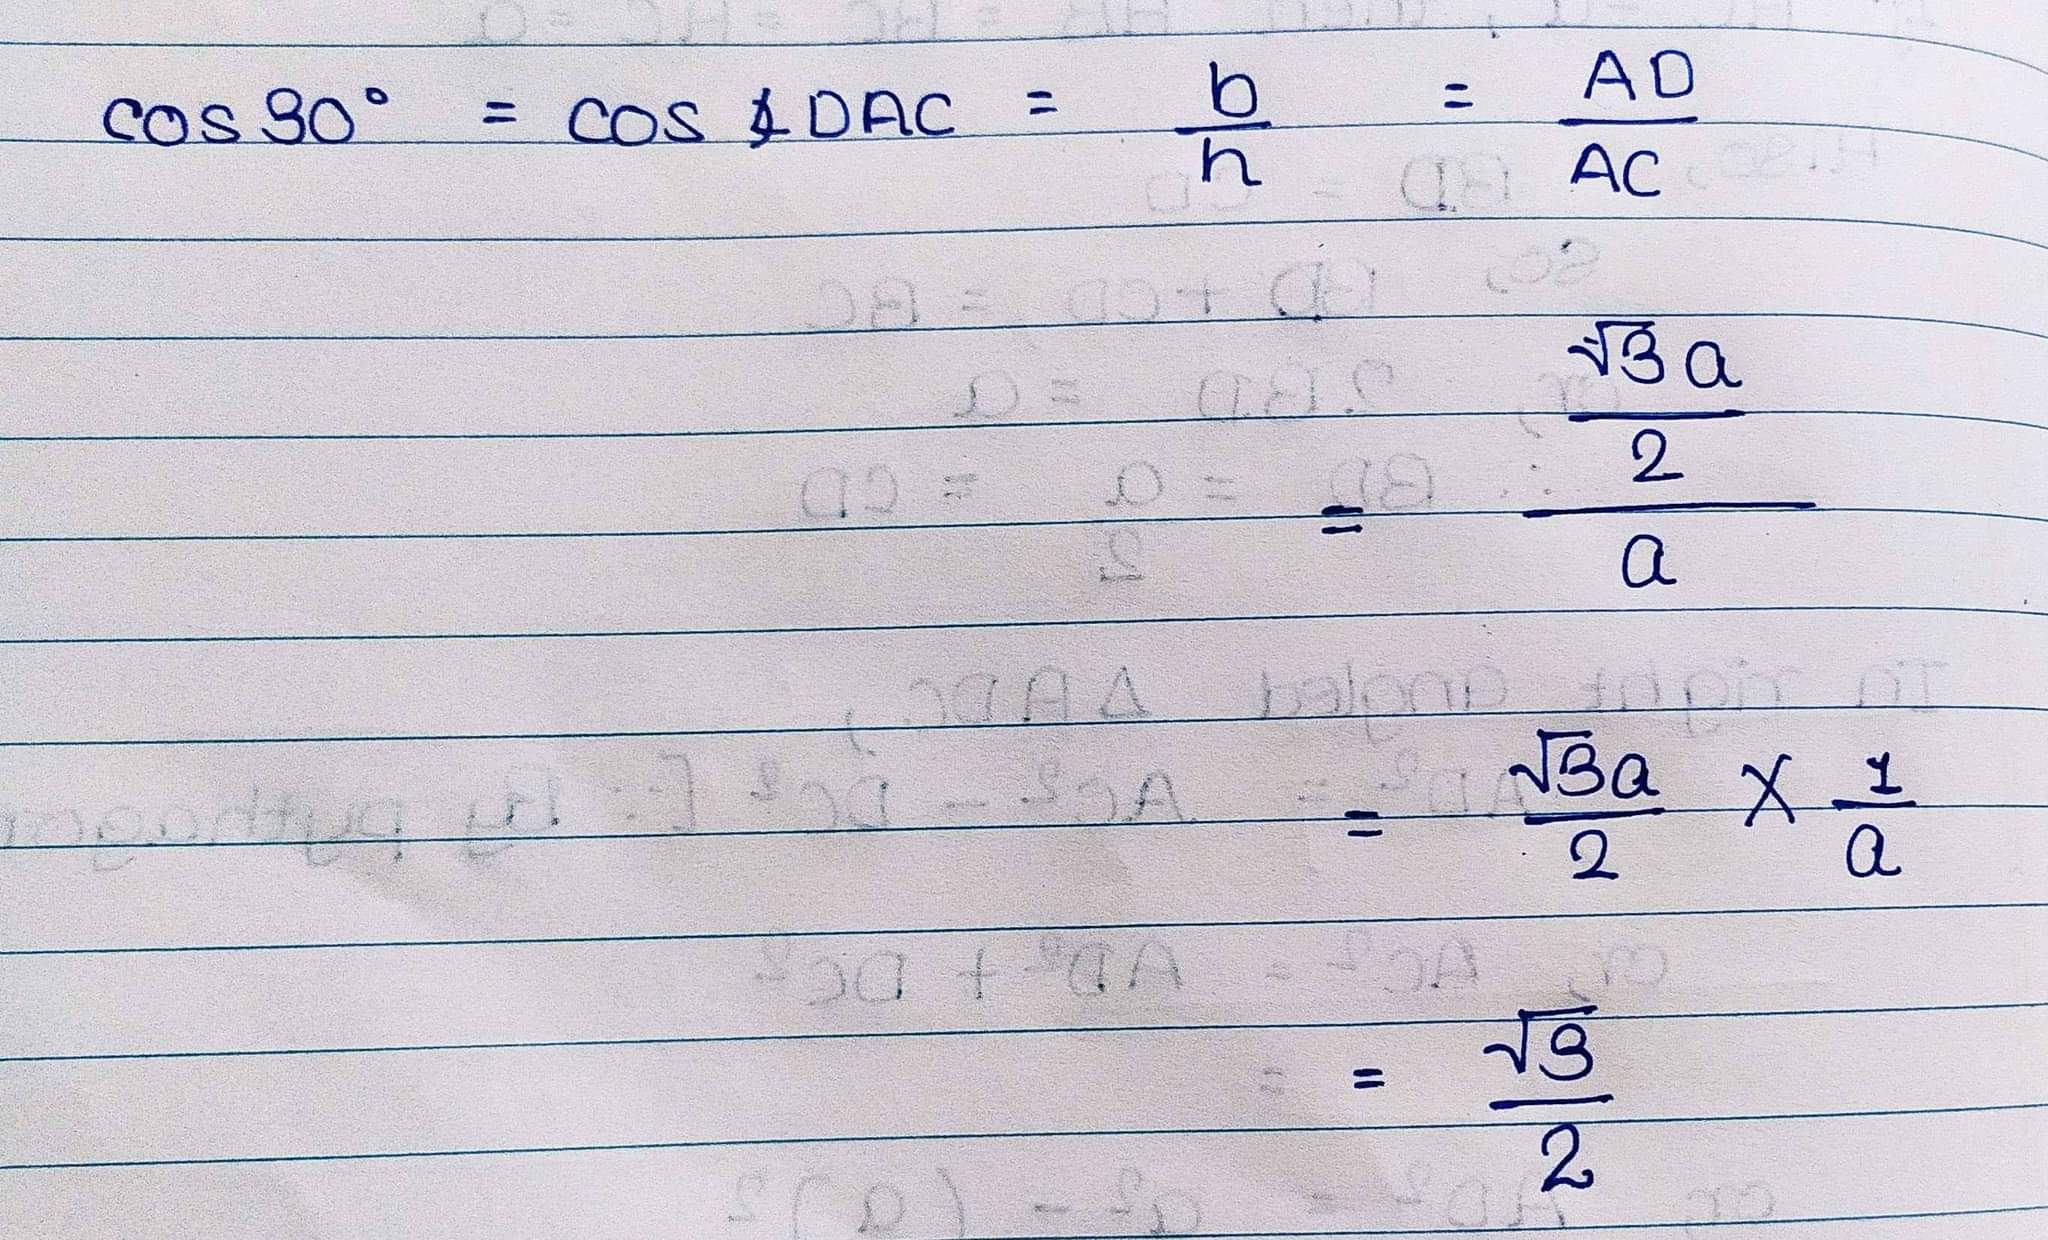 cos 30° = cos ∡DAC = b/h = AD/AC
= (√3a/2)/a
= √3a/2 × 1/a
= √3/2